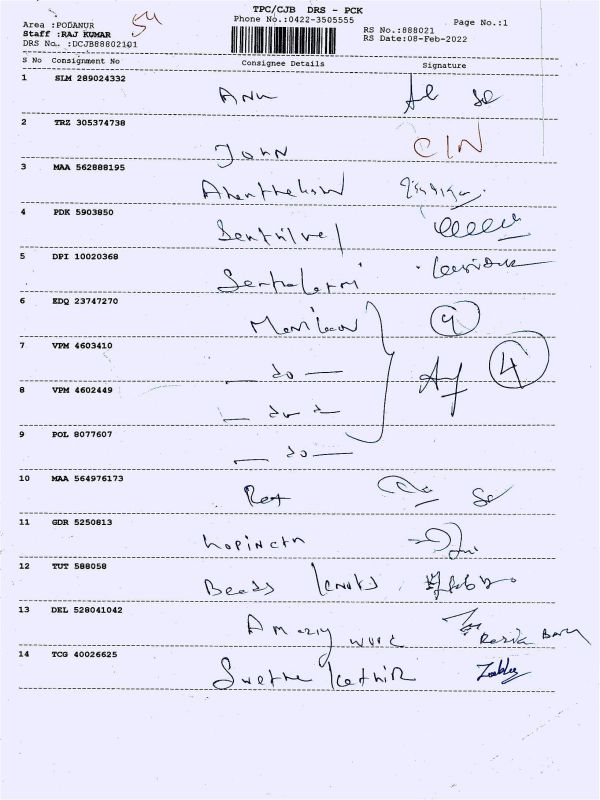 TPC/CJB DRS - PCK
Phone No.:0422-3505555
Page No.:1
54
Area :PODANUR
Staff :RAJ KUMAR
DRS No. :DCJB88802101
RS No.:888021
RS Date:08-Feb-2022
S No Consignment No Consignee Details Signature
1 SLM 289024332
Anu
2 TRZ 305374738
John CIN
3 MAA 562888195
4 PDK 5903850
Senthilvel
5 DPI 10020368
6 EDQ 23747270
7 VPM 4603410
— do — 4
8 VPM 4602449
— do —
9 POL 8077607
— do —
10 MAA 564976173
Rex
11 GDR 5250813
Gopinath
12 TUT 588058
Beads knots
13 DEL 528041042
Amazing work
14 TCG 40026625
Swetha Kathir